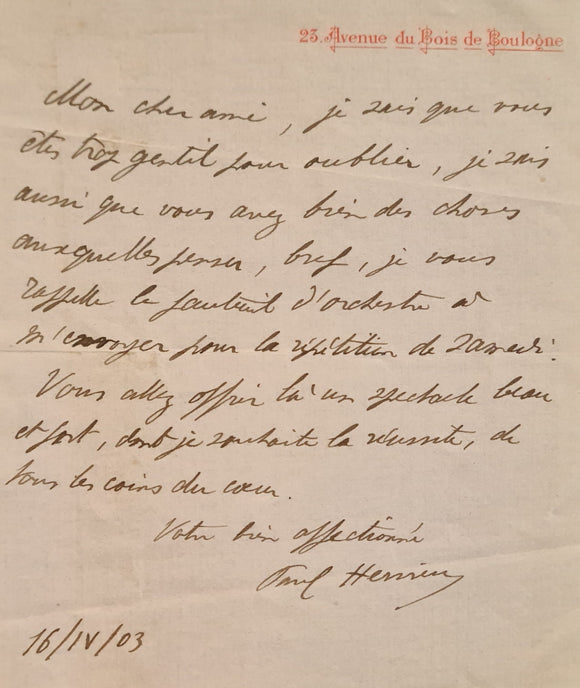 23. Avenue du Bois de Boulogne
Mon cher ami, je sais que vous
êtes trop gentil pour oublier, je sais
aussi que vous avez bien des choses
auxquelles penser, bref, je vous
rappelle le fauteuil d'orchestre à
m'envoyer pour la répétition de Samedi.
Vous allez offrir là un spectacle beau
et fort, dont je souhaite la réussite, de
tous les coins du cœur.
Votre bien affectionné
Paul Hervieu
16/IV/03